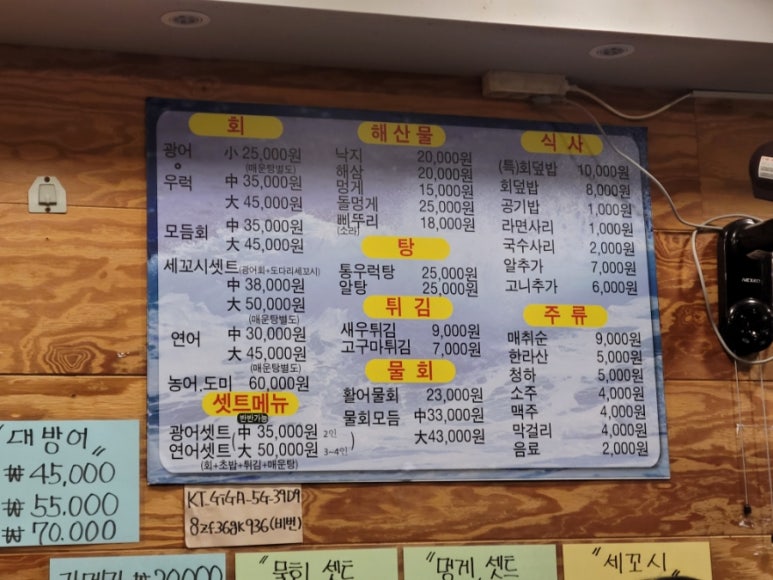 회
광어 小 25,000원
(매운탕별도)
우럭 中 35,000원
大 45,000원
모듬회 中 35,000원
大 45,000원
세꼬시셋트(광어회+도다리세꼬시)
中 38,000원
大 50,000원
(매운탕별도)
연어 中 30,000원
大 45,000원
(매운탕별도)
농어.도미 60,000원
셋트메뉴
반반가능
광어셋트 中 35,000원 2인
연어셋트 大 50,000원 3~4인
(회+초밥+튀김+매운탕)
해산물
낙지 20,000원
해삼 20,000원
멍게 15,000원
돌멍게 25,000원
삐뚜리 18,000원
(소라)
탕
통우럭탕 25,000원
알탕 25,000원
튀김
새우튀김 9,000원
고구마튀김 7,000원
물회
활어물회 23,000원
물회모듬 中33,000원
大43,000원
식사
(특)회덮밥 10,000원
회덮밥 8,000원
공기밥 1,000원
라면사리 1,000원
국수사리 2,000원
알추가 7,000원
고니추가 6,000원
주류
매취순 9,000원
한라산 5,000원
청하 5,000원
소주 4,000원
맥주 4,000원
막걸리 4,000원
음료 2,000원
"대방어"
₩45,000
₩55,000
₩70.000
KT_GiGA_5G_39D9
8zf36gk936(비번)
₩20000
"물회 셋트
"멍게 셋트
"세꼬시"